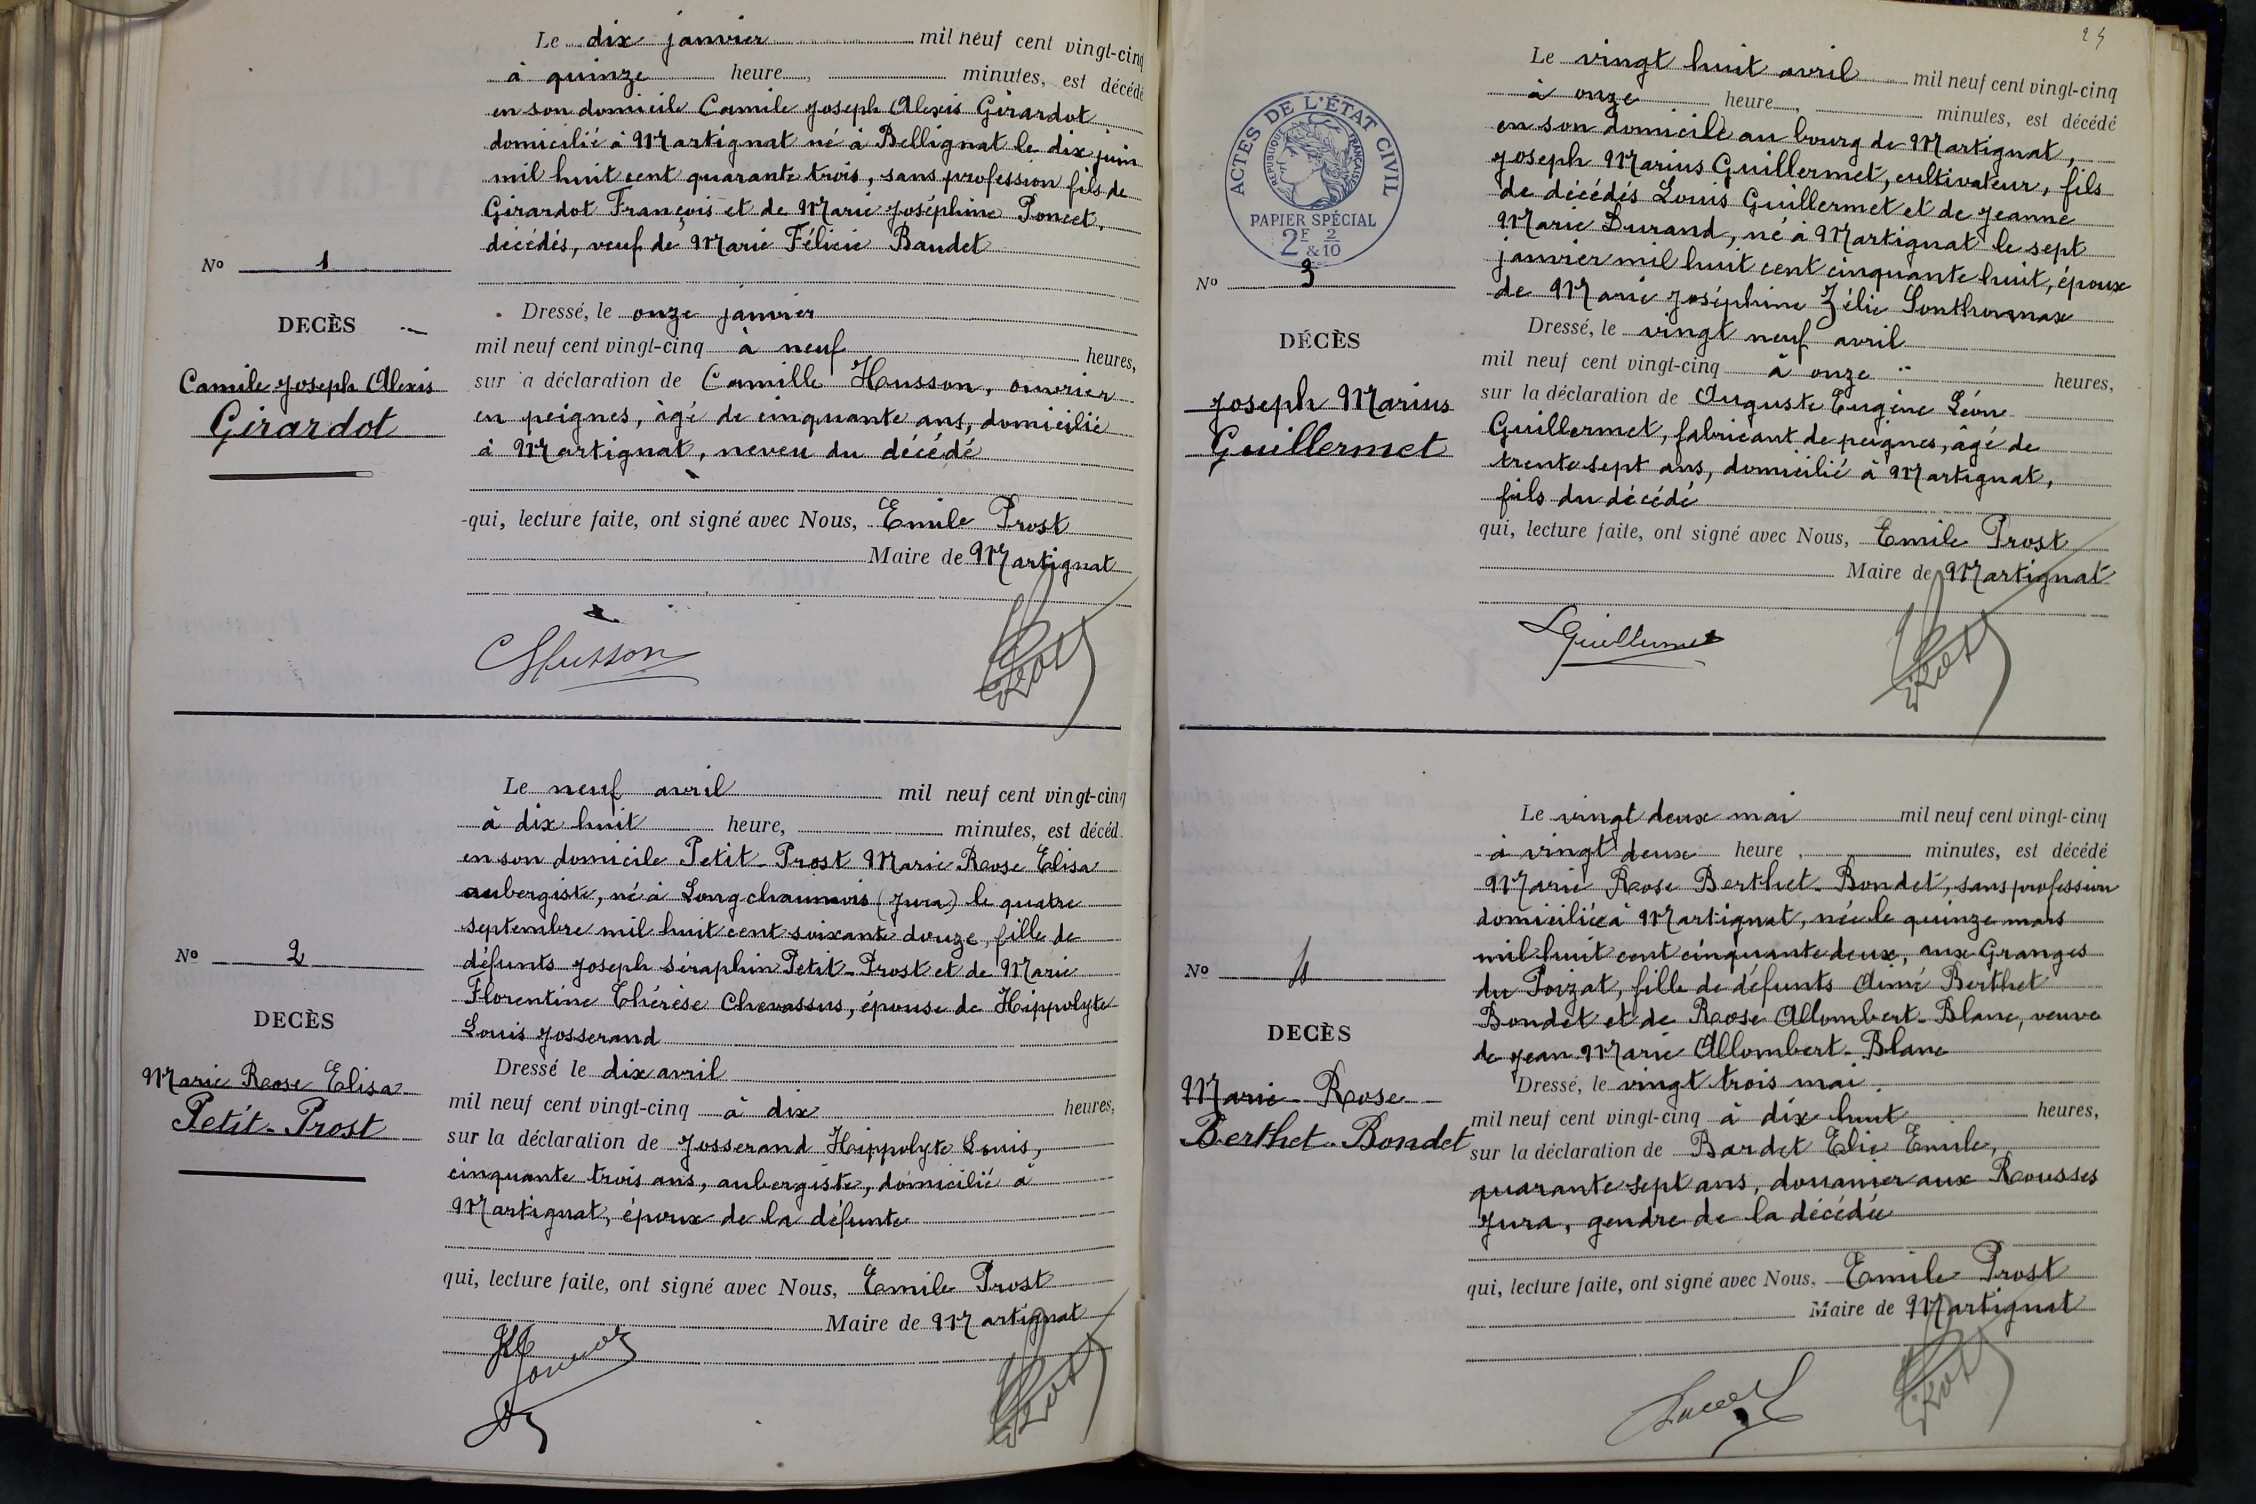 Le dix janvier mil neuf cent vingt-cinq
à quinze heure, minutes, est décédé
en son domicile Camile Joseph Alexis Girardot
domicilié à Martignat né à Bellignat le dix juin
mil huit cent quarante trois, sans profession fils de
Girardot François et de Marie Joséphine Poncet,
décédés, veuf de Marie Félicie Baudet
No 1
DECÈS
Camile Joseph Alexis
Girardot
Dressé, le onze janvier
mil neuf cent vingt-cinq à neuf heures,
sur a déclaration de Camille Husson, ouvrier
en peignes, âgé de cinquante ans, domicilié
à Martignat, neveu du décédé
qui, lecture faite, ont signé avec Nous, Emile Prost
Maire de Martignat
CHusson
Le neuf avril mil neuf cent vingt-cinq
à dix huit heure, minutes, est décéd
en son domicile Petit-Prost Marie Rose Elisa
aubergiste, né à Longchaumois (Jura) le quatre
septembre mil huit cent soixante douze, fille de
défunts Joseph Séraphin Petit-Prost et de Marie
Florentine Thérèse Chevassus, épouse de Hippolyte
Louis Josserand
No 2
DECÈS
Marie Rose Elisa
Petit-Prost
Dressé le dix avril
mil neuf cent vingt-cinq à dix heures,
sur la déclaration de Josserand Hippolyte Louis,
cinquante trois ans, aubergiste, domicilié à
Martignat, époux de la défunte
qui, lecture faite, ont signé avec Nous, Emile Prost
Maire de Martignat
25
Le vingt huit avril mil neuf cent vingt-cinq
à onze heure, minutes, est décédé
en son domicile au bourg de Martignat,
Joseph Marius Guillermet, cultivateur, fils
de décédés Louis Guillermet et de Jeanne
Marie Durand, né à Martignat le sept
janvier mil huit cent cinquante huit, époux
de Marie Joséphine Zélie Sonthonnax
ACTES DE L'ÉTAT CIVIL
RÉPUBLIQUE FRANÇAISE
PAPIER SPÉCIAL
2F & 2/10
No 3
DÉCÈS
Joseph Marius
Guillermet
Dressé, le vingt neuf avril
mil neuf cent vingt-cinq à onze heures,
sur la déclaration de Auguste Eugène Léon
Guillermet, fabricant de peignes, âgé de
trente sept ans, domicilié à Martignat,
fils du décédé
qui, lecture faite, ont signé avec Nous, Emile Prost
Maire de Martignat
LGuillermet
Le vingt deux mai mil neuf cent vingt-cinq
à vingt deux heure, minutes, est décédé
Marie Rose Berthet-Bondet, sans profession
domiciliée à Martignat, née le quinze mars
mil huit cent cinquante deux, aux Granges
du Poizat, fille de défunts Aimé Berthet
Bondet et de Rose Allombert-Blanc, veuve
de Jean Marie Allombert-Blanc
No 4
DECÈS
Marie Rose
Berthet-Bondet
Dressé, le vingt trois mai.
mil neuf cent vingt-cinq à dix huit heures,
sur la déclaration de Bardet Elie Emile,
quarante sept ans, douanier aux Rousses
Jura, gendre de la décédée
qui, lecture faite, ont signé avec Nous, Emile Prost
Maire de Martignat